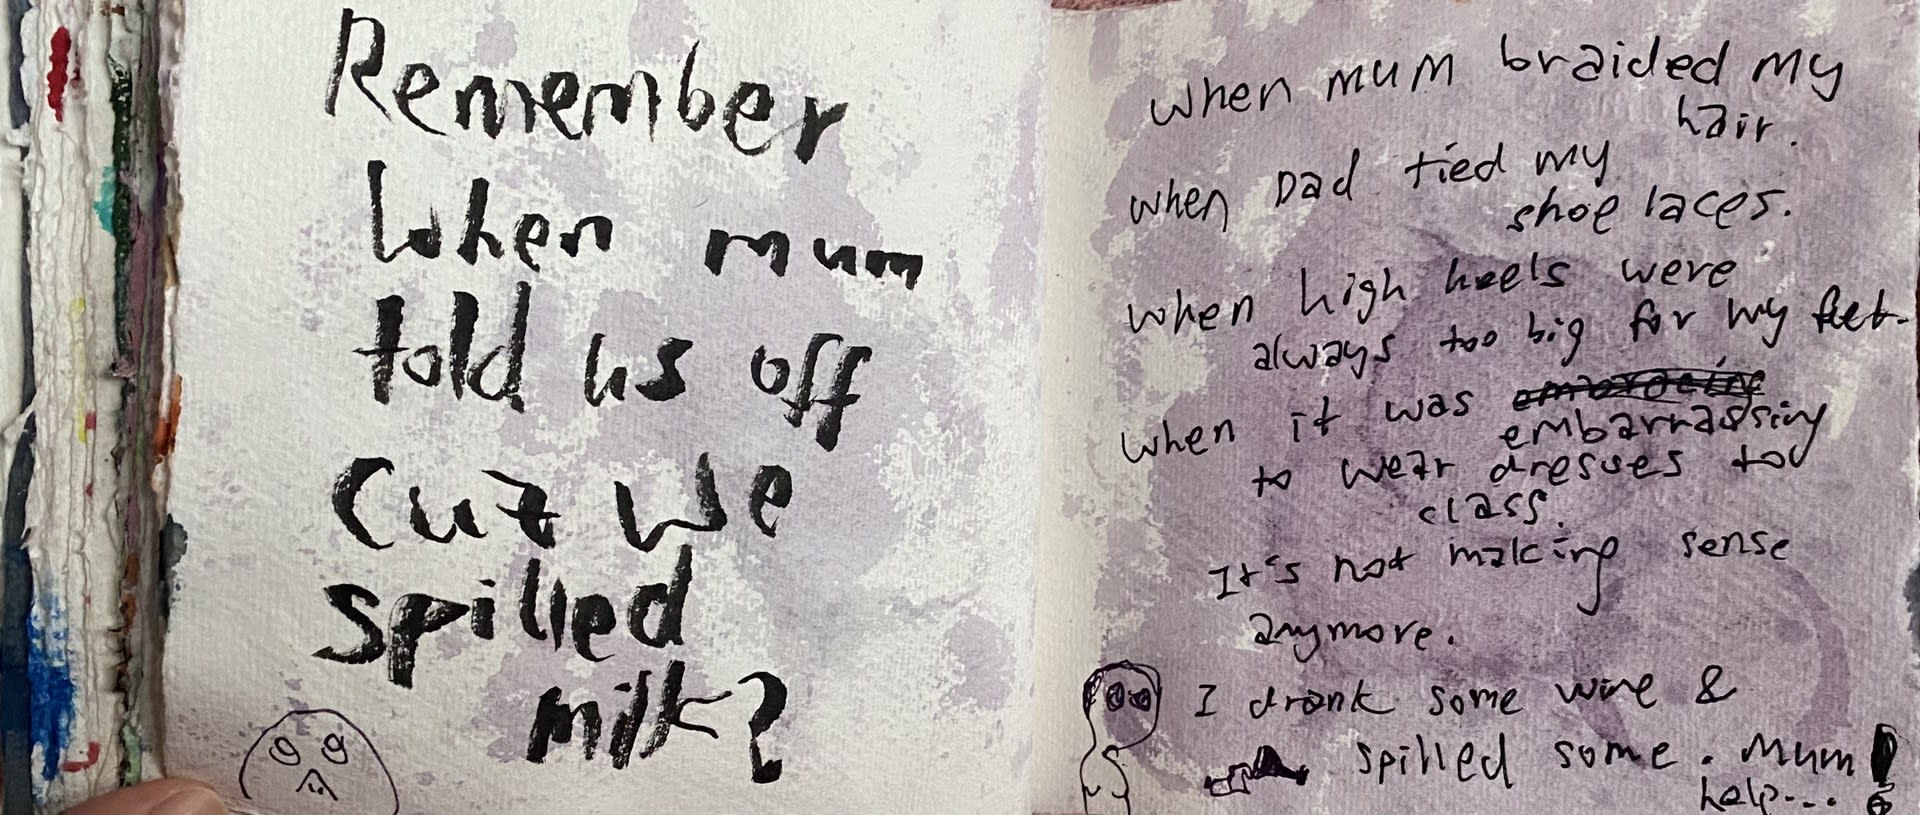 Remember
when mum
told us off
cuz we
spilled
milk?
when mum braided my
hair.
when Dad tied my
shoe laces.
when high heels were
always too big for my feet.
when it was
embarrassing
to wear dresses to
class.
It's not making sense
anymore.
I drank some wine &
spilled some. Mum!
help...